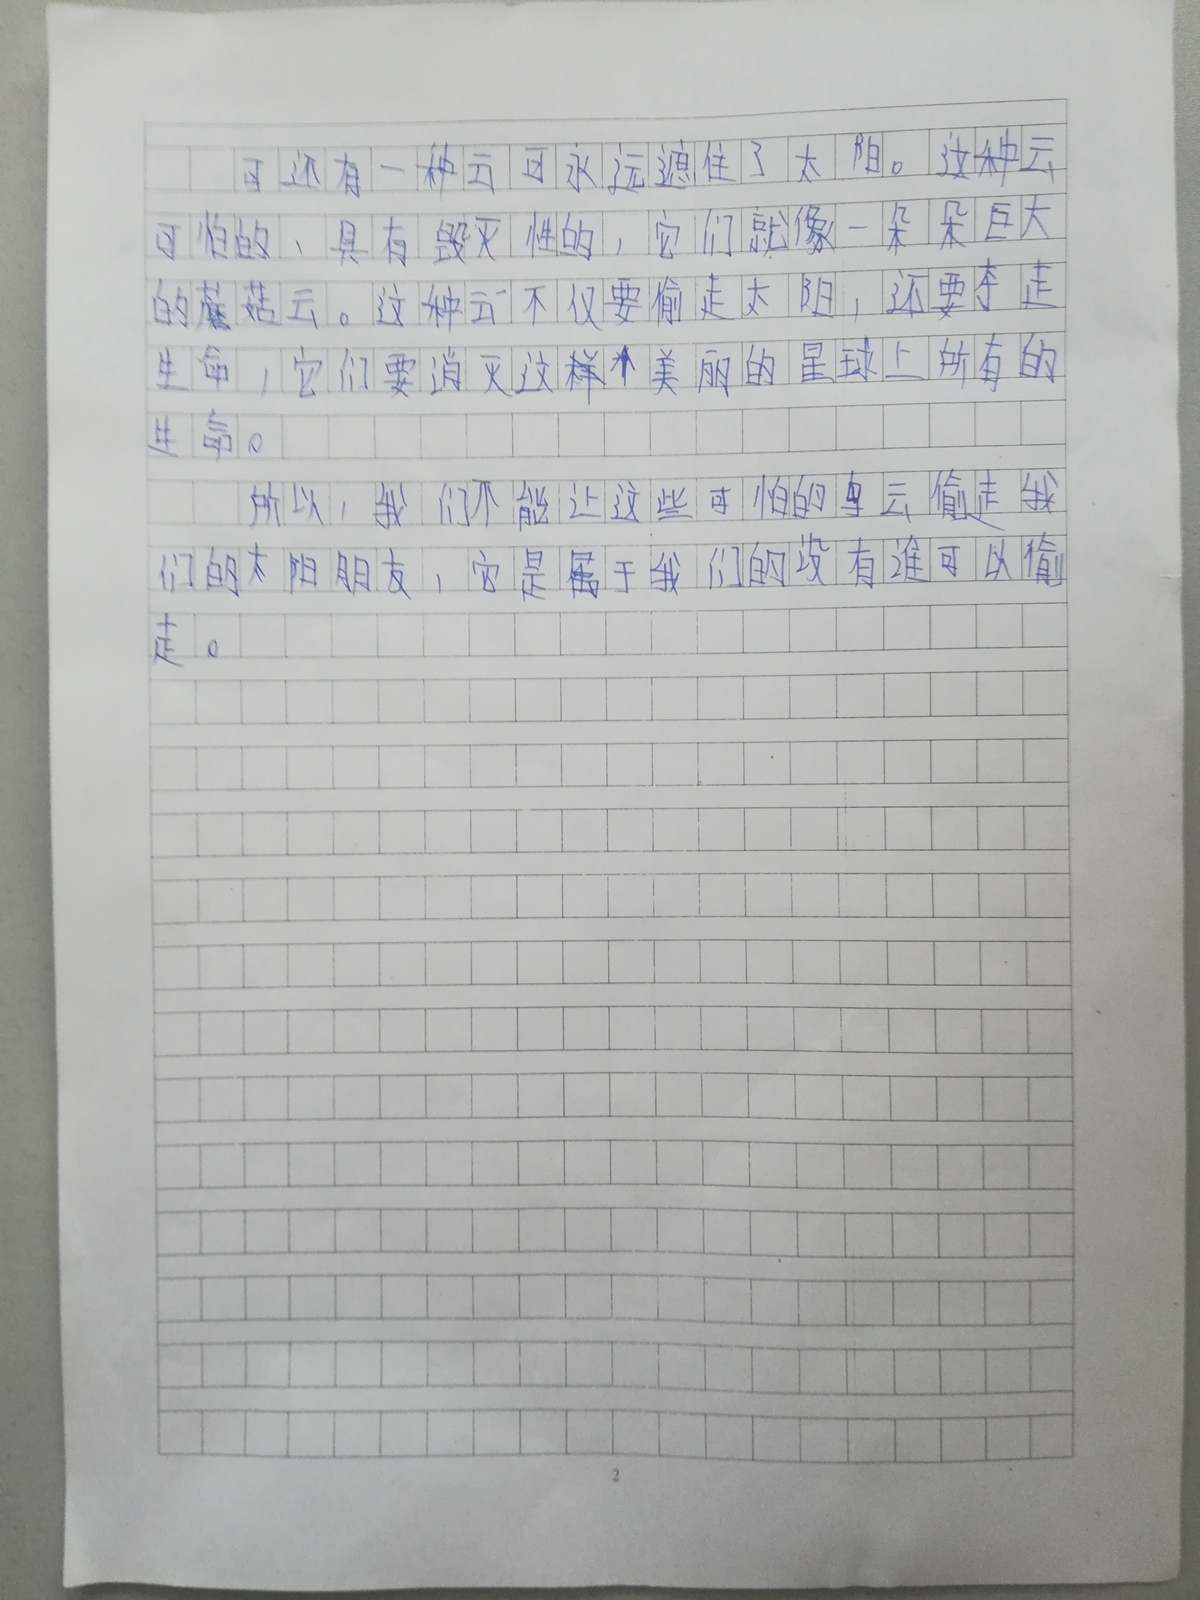 可还有一种云可永远遮住了太阳。这种云
可怕的、具有毁灭性的，它们就像一朵朵巨大
的蘑菇云。这种云不仅要偷走太阳，还要夺走
生命，它们要消灭这样个美丽的星球上所有的
生命。
所以，我们不能让这些可怕的乌云偷走我
们的太阳朋友，它是属于我们的没有谁可以偷
走。
2